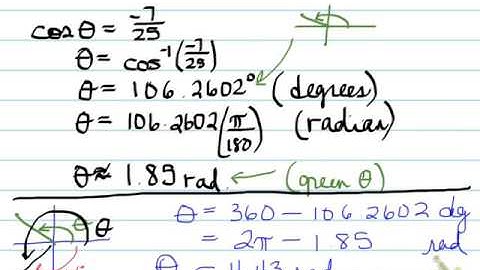 cos θ = -7/25
θ = cos⁻¹(-7/25)
θ = 106.2602° (degrees)
θ = 106.2602(π/180) (radian)
θ ≈ 1.85 rad. ← (green θ)
θ θ θ = 360 - 106.2602 deg
= 2π - 1.85 rad
θ = 4.43 rad